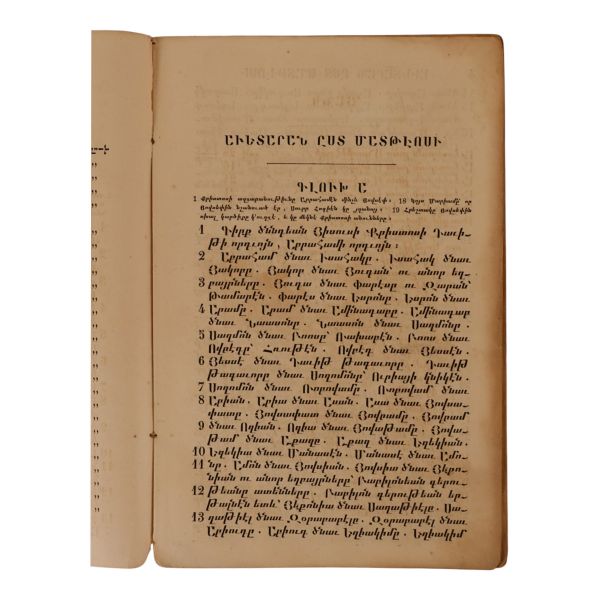 ԱՒԵՏԱՐԱՆ ԸՍՏ ՄԱՏԹԷՈՍԻ
ԳԼՈՒԽ Ա
1 Քրիստոսի ազգաբանութիւնը Աբրահամէն մինչև Յովսէփ։ 18 Կոյս Մարիամը որ
Յովսէփին նշանուած էր, Սուրբ Հոգիէն կը յղանայ։ 19 Հրեշտակը Յովսէփին
սխալ կարծիքը կ՚ուղղէ, և կը մեկնէ Քրիստոսի անունները։
1 Գիրք ծննդեան Յիսուսի Քրիստոսի Դաւի-
թի որդւոյն, Աբրահամի որդւոյն։
2 Աբրահամ ծնաւ Իսահակը. Իսահակ ծնաւ
Յակոբը. Յակոբ ծնաւ Յուդան՝ ու անոր եղ-
3 բայրները. Յուդա ծնաւ Փարէսը ու Զարան՝
Թամարէն. Փարէս ծնաւ Եսրոնը. Եսրոն ծնաւ
4 Արամը. Արամ ծնաւ Ամինադաբը. Ամինադաբ
ծնաւ Նաասոնը. Նաասոն ծնաւ Սաղմոնը.
5 Սաղմոն ծնաւ Բոոսը՝ Ռախաբէն. Բոոս ծնաւ
Ովբէդը՝ Հռութէն. Ովբէդ ծնաւ Յեսսէն.
6 Յեսսէ ծնաւ Դաւիթ թագաւորը. Դաւիթ
թագաւորը ծնաւ Սողոմոնը՝ Ուրիայի կնիկէն.
7 Սողոմոն ծնաւ Ռոբովամը. Ռոբովամ ծնաւ
8 Աբիան. Աբիա ծնաւ Ասան. Ասա ծնաւ Յովսա-
փատը. Յովսափատ ծնաւ Յովրամը. Յովրամ
9 ծնաւ Ոզիան. Ոզիա ծնաւ Յովաթամը. Յովա-
թամ ծնաւ Աքազը. Աքազ ծնաւ Եզեկիան.
10 Եզեկիա ծնաւ Մանասէն. Մանասէ ծնաւ Ամո-
11 նը. Ամոն ծնաւ Յովսիան. Յովսիա ծնաւ Յեքո-
նիան ու անոր եղբայրները՝ Բաբիլոնեան գերու-
12 թեանը ատենները. Բաբիլոն գերութեան եր-
թալնէն ետև՝ Յեքոնիա ծնաւ Սաղաթիէլը. Սա-
13 ղաթիէլ ծնաւ Զօրաբաբէլը. Զօրաբաբէլ ծնաւ
Աբիուդը. Աբիուդ ծնաւ Եղիակիմը. Եղիակիմ